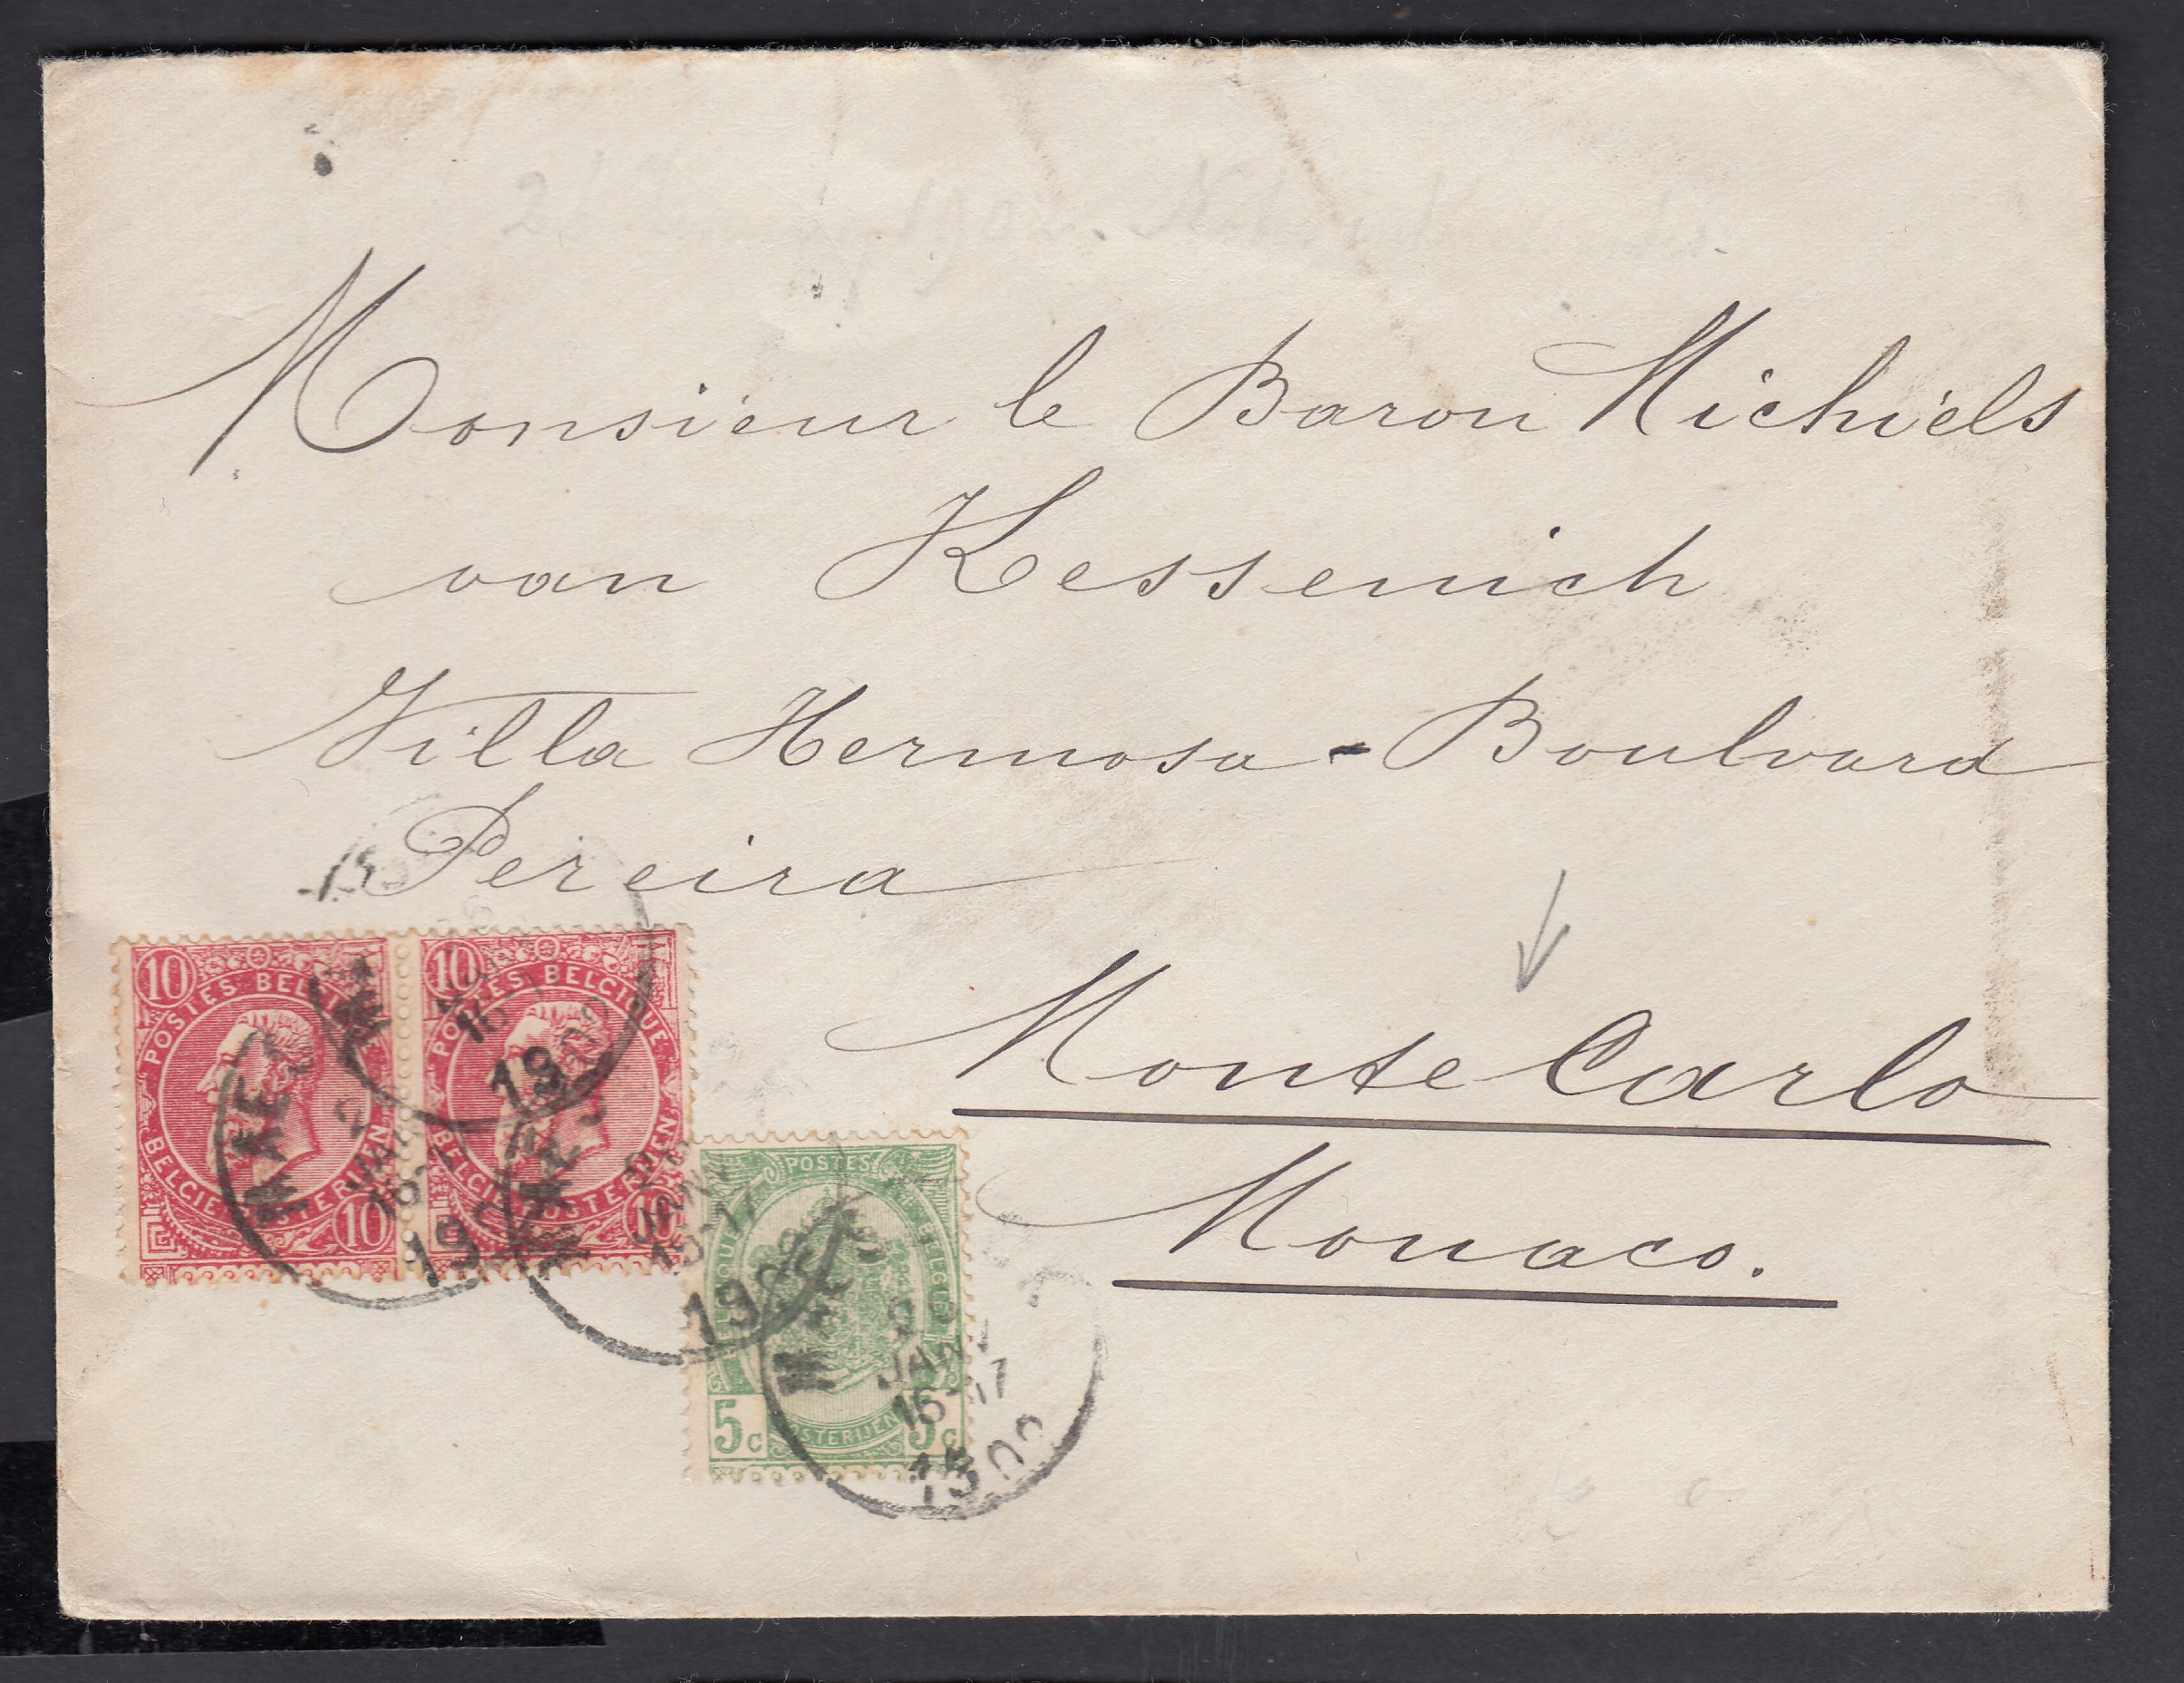 Monsieur le Baron Michiels
van Kessenich
Villa Hermosa - Boulvard
Pereira
Monte Carlo
Monaco.
10 10
POSTES BELGIQUE
BELGIE POSTERIJEN
10 10
POSTES
BELGIE
POSTERIJEN
5c 5c
MAES
JANV
16-17
1900